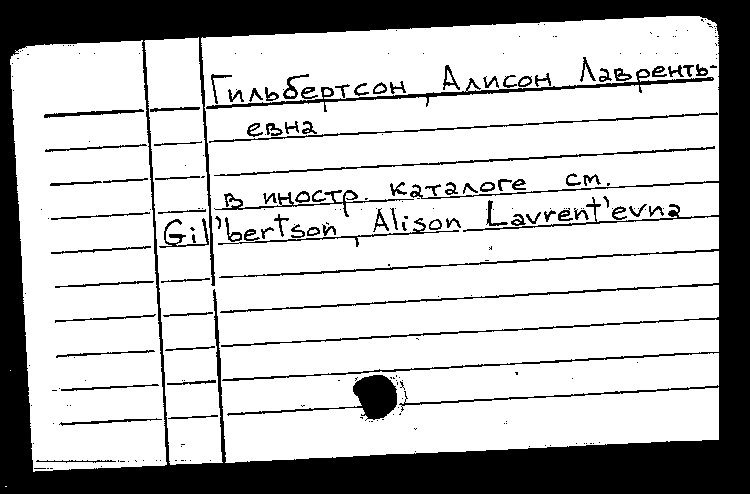 Гильбертсон, Алисон Лавренть-
евна
в иностр. каталоге см.
Gil'bertson, Alison Lavrent'evna